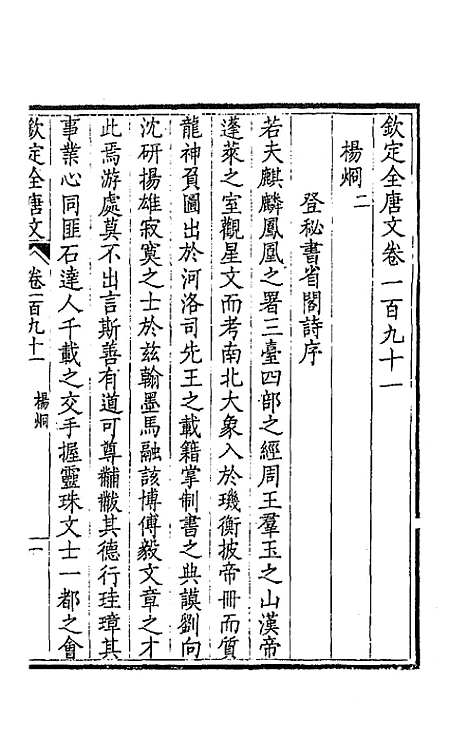 欽定全唐文卷一百九十一
楊炯二
登秘書省閣詩序
若夫麒麟鳳凰之署三臺四部之經周王羣玉之山漢帝
蓬萊之室觀星文而考南北大象入於璣衡披帝冊而質
龍神負圖出於河洛司先王之載籍掌制書之典謨劉向
沈研揚雄寂寞之士於茲翰墨馬融該博傅毅文章之才
此焉游處莫不出言斯善有道可尊黼黻其德行珪璋其
事業心同匪石達人千載之交手握靈珠文士一都之會
欽定全唐文 卷一百九十一 楊炯 一